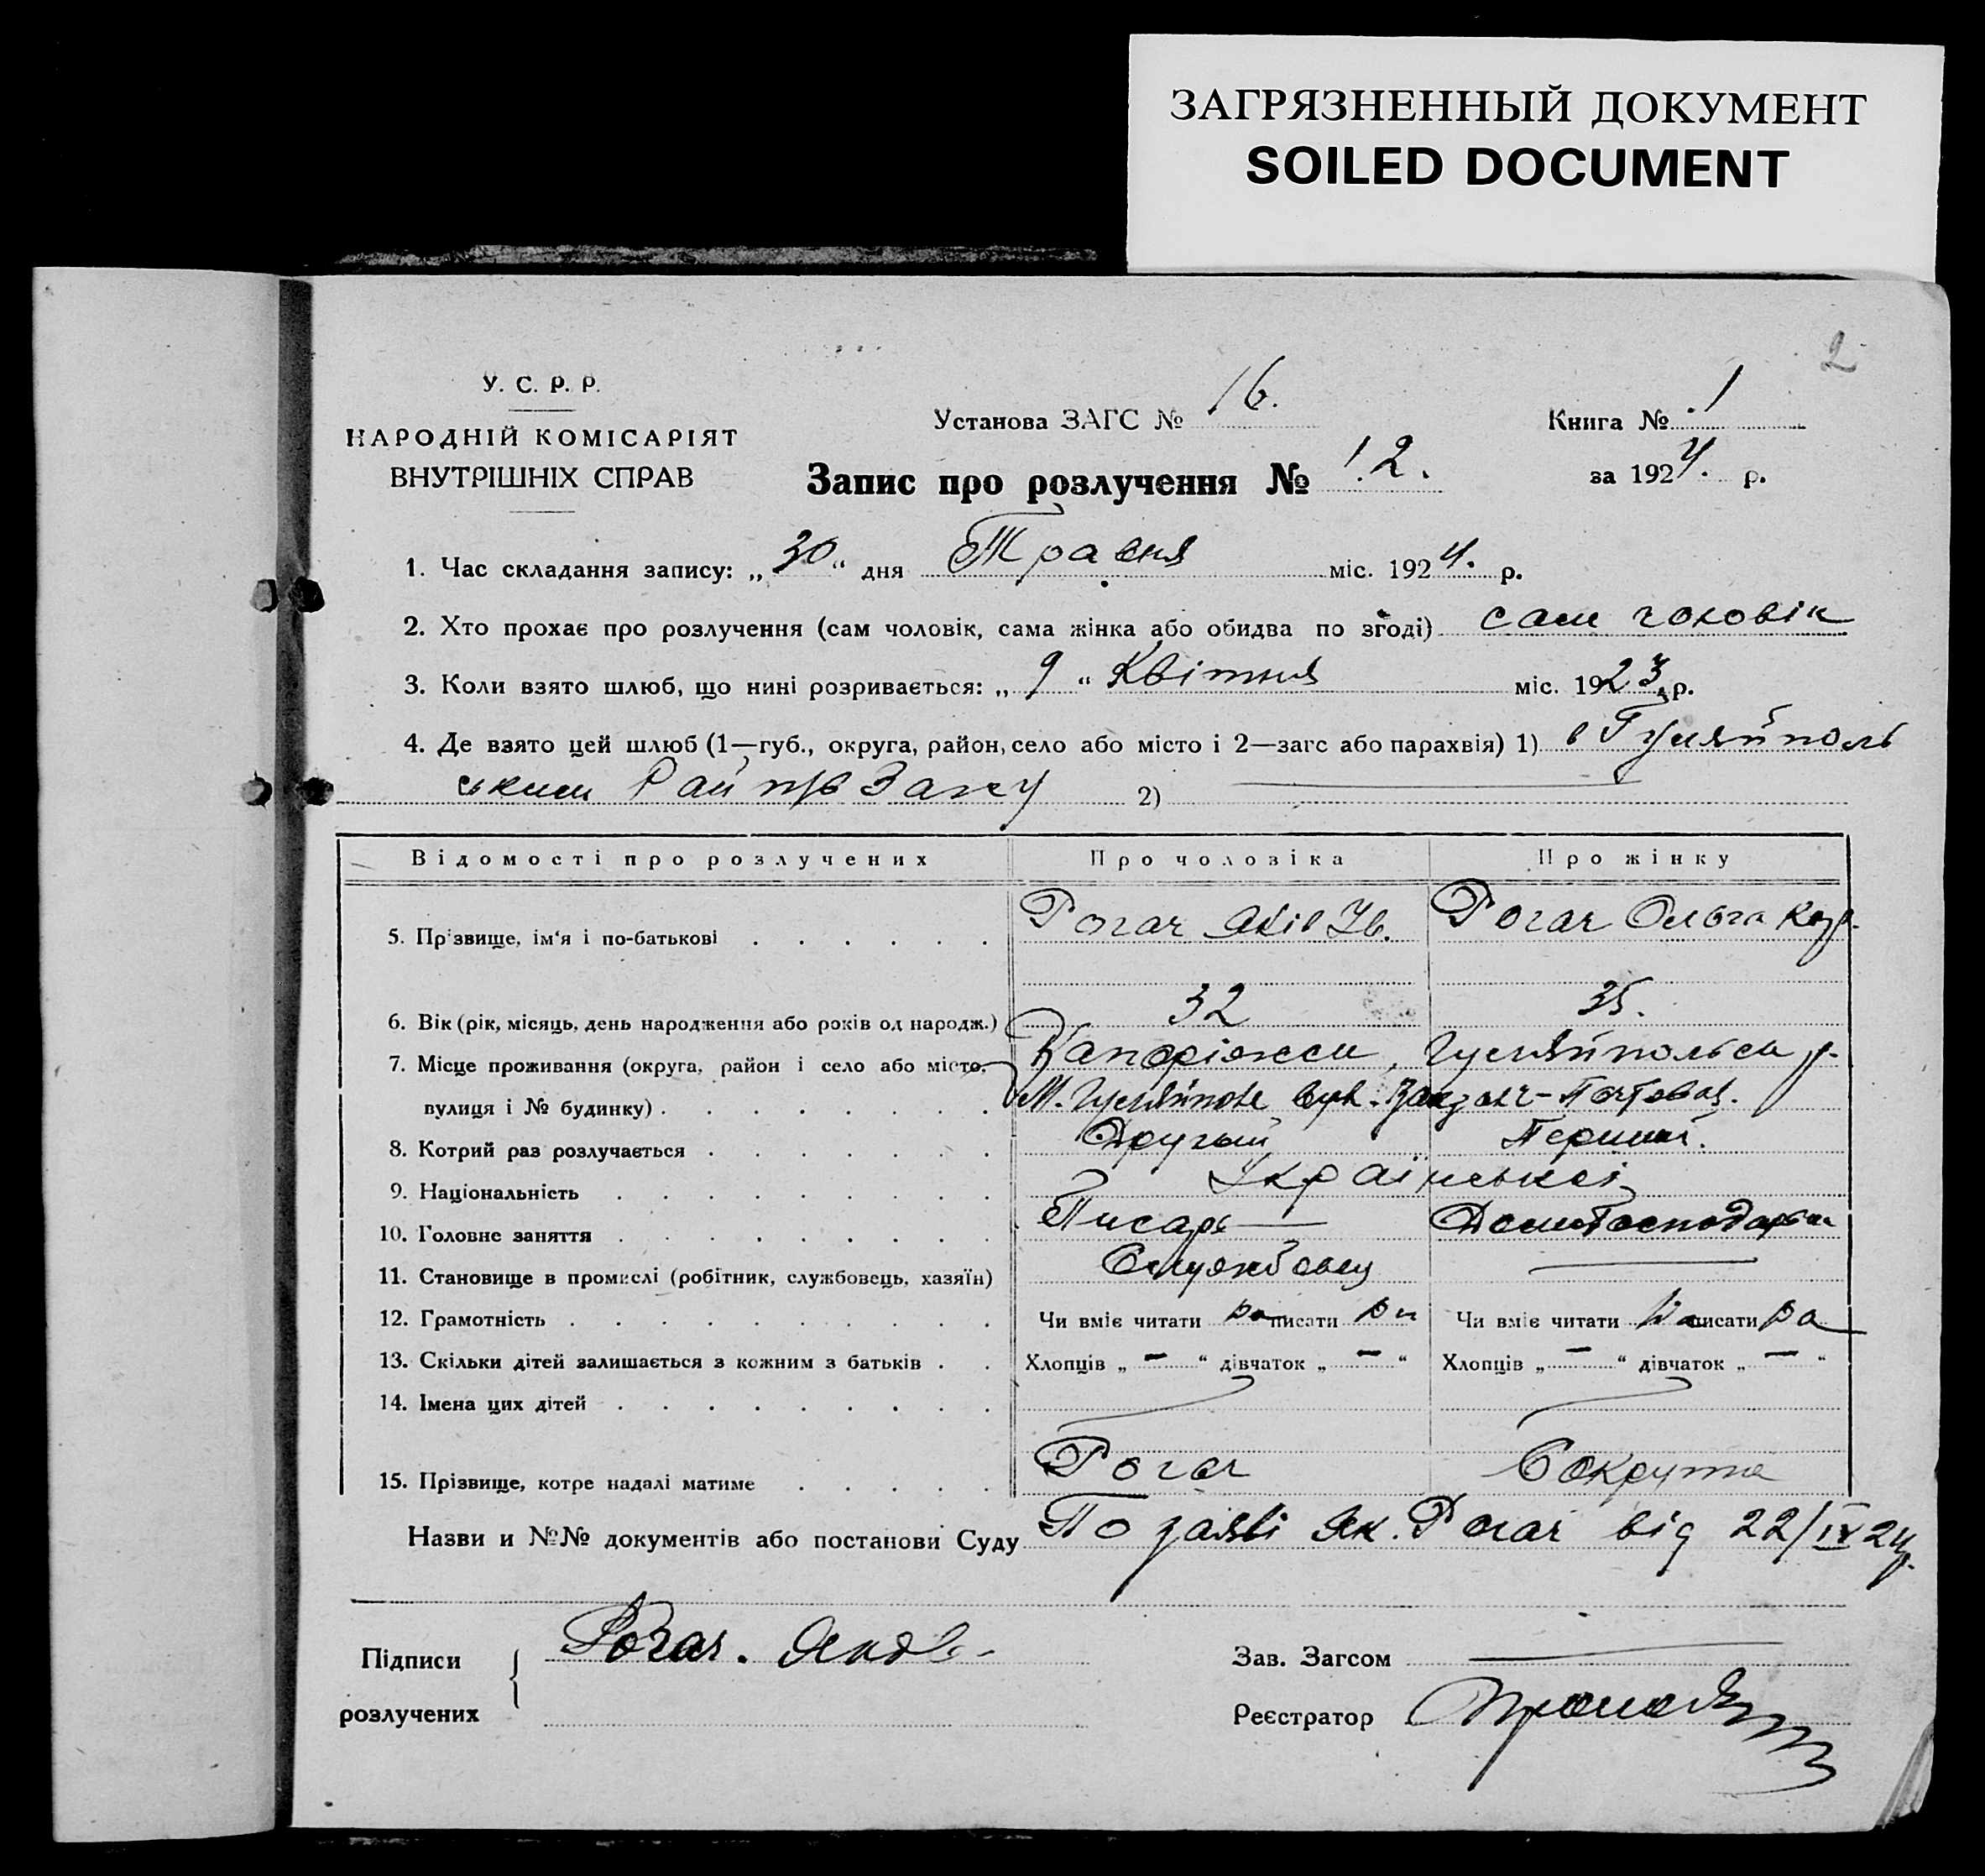 ЗАГРЯЗНЕННЫЙ ДОКУМЕНТ
SOILED DOCUMENT
2
У. С. Р. Р.
НАРОДНІЙ КОМІСАРІЯТ
ВНУТРІШНІХ СПРАВ
Установа ЗАГС № 16.
Книга № 1
за 1924. р.
Запис про розлучення № 12.
1. Час складання запису: „30“ дня Травня міс. 1924. р.
2. Хто прохає про розлучення (сам чоловік, сама жінка або обидва по згоді) сам чоловік
3. Коли взято шлюб, що нині розривається: „9“ Квітня міс. 1923 р.
4. Де взято цей шлюб (1—губ., округа, район, село або місто і 2—загс або парахвія) 1) в Гуляйполь
ським Рай 2) —
Відомості про розлучених Про чоловіка Про жінку
5. Прізвище, ім'я і по-батькові Рогач Яків Ів. Рогач Ольга
6. Вік (рік, місяць, день народження або років од народж.) 32 35.
7. Місце проживання (округа, район і село або місто, Запоріжськ, Гуляйпольськ р.
вулиця і № будинку) М. Гуляйполе вул. Почтова
8. Котрий раз розлучається Другий Перший.
9. Національність Українські
10. Головне заняття Писарь — Домогосподарка
11. Становище в промислі (робітник, службовець, хазяїн) Службовец —
12. Грамотність Чи вміє читати писати Чи вміє читати писати
13. Скільки дітей залишається з кожним з батьків Хлопців „—“ дівчаток „—“ Хлопців „—“ дівчаток „—“
14. Імена цих дітей
15. Прізвище, котре надалі матиме Рогач Сокрута
Назви и №№ документів або постанови Суду По заяві Як. Рогач від 22/IV 24р.
Підписи Рогач. Яков
розлучених
Зав. Загсом —
Реєстратор